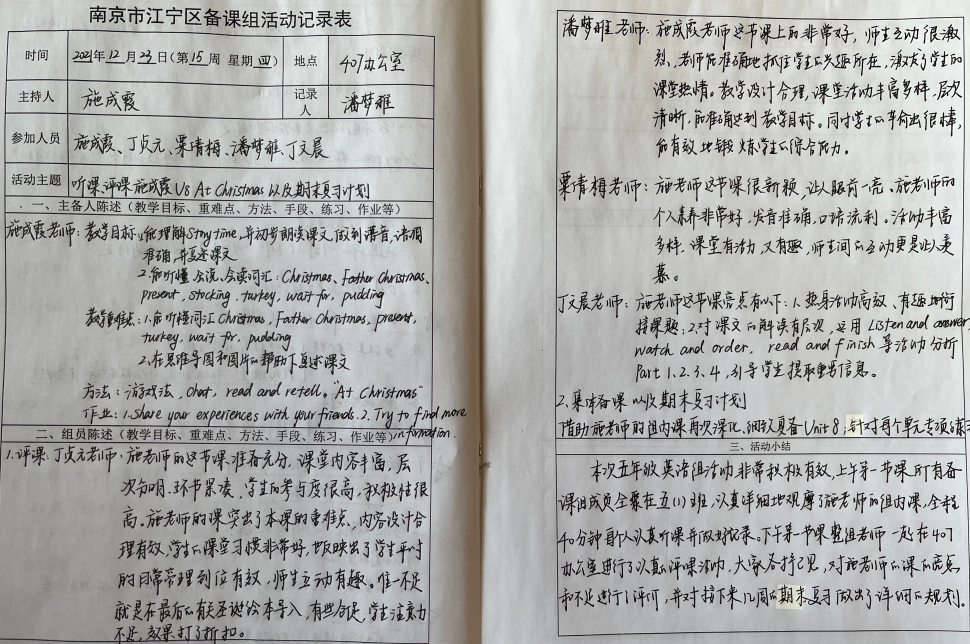 南京市江宁区备课组活动记录表
时间 2021年12月23日(第15周 星期四) 地点 407办公室
主持人 施成霞 记录人 潘梦雅
参加人员 施成霞、丁贞元、栗清梅、潘梦雅、丁文晨
活动主题 听课、评课施成霞U8 At Christmas以及期末复习计划
一、主备人陈述（教学目标、重难点、方法、手段、练习、作业等）
施成霞老师：教学目标：1.能理解Story time，并初步朗读课文，做到语音、语调
准确，并复述课文
2.能听懂、会说、会读词汇：Christmas, Father Christmas,
present, stocking, turkey, wait for, pudding
教学重难点：1.能听懂词汇Christmas, Father Christmas, present,
turkey, wait for, pudding
2.在思维导图和图片的帮助下复述课文
方法：游戏法，chat, read and retell,“At Christmas”
作业：1.Share your experiences with your friends. 2. Try to find more
information.
二、组员陈述（教学目标、重难点、方法、手段、练习、作业等）
1.评课：丁贞元老师：施老师的这节课，准备充分，课堂内容丰富，层
次分明，环节紧凑，学生的参与度很高，积极性很
高。施老师的课突出了本课的重难点，内容设计合
理有效，学生的课堂习惯非常好，也反映出了学生平时
的日常管理到位有效，师生互动有趣。唯一不足
就是在最后的有关圣诞绘本导入，有些仓促，学生注意力
不足，效果打了折扣。
潘梦雅老师：施成霞老师这节课上的非常好，师生互动很激
烈，老师能准确地抓住学生的兴趣所在，激发了学生的
课堂热情。教学设计合理，课堂活动丰富多样，层次
清晰，能准确达到教学目标。同时学生的输出很棒，
能有效地锻炼学生的综合能力。
栗清梅老师：施老师这节课很新颖，让人眼前一亮。施老师的
个人素养非常好，发音准确，口语流利。活动丰富
多样，课堂有活力，又有趣，师生间的互动更是让人羡
慕。
丁文晨老师：施老师这节课亮点有以下：1.热身活动高效、有趣地衔
接课题；2.对课文的解读有层次，运用Listen and answer,
watch and order, read and finish等活动分析
Part 1、2、3、4，引导学生提取重要信息。
2.集体备课以及期末复习计划
借助施老师的组内课再次深化、细致复备Unit 8；针对每个单元专项练习
三、活动小结
本次五年级英语组活动非常积极有效，上午第一节课所有备
课组成员全聚在五(1)班，认真详细地观摩了施老师的组内课，全程
40分钟每人认真听课并做好记录。下午第一节课整组老师一起在407
办公室进行了认真的评课活动，大家各抒己见，对施老师的课的亮点
和不足进行了评价，并对接下来几周的期末复习做出了详细的规划。